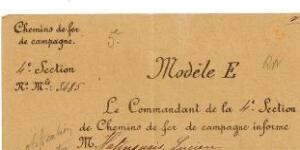 Chemins de fer
de campagne.
5e
4e Section
Nº Mle: 5485
Modèle E
Le Commandant de la 4e Section
de Chemins de fer de campagne informe
M.